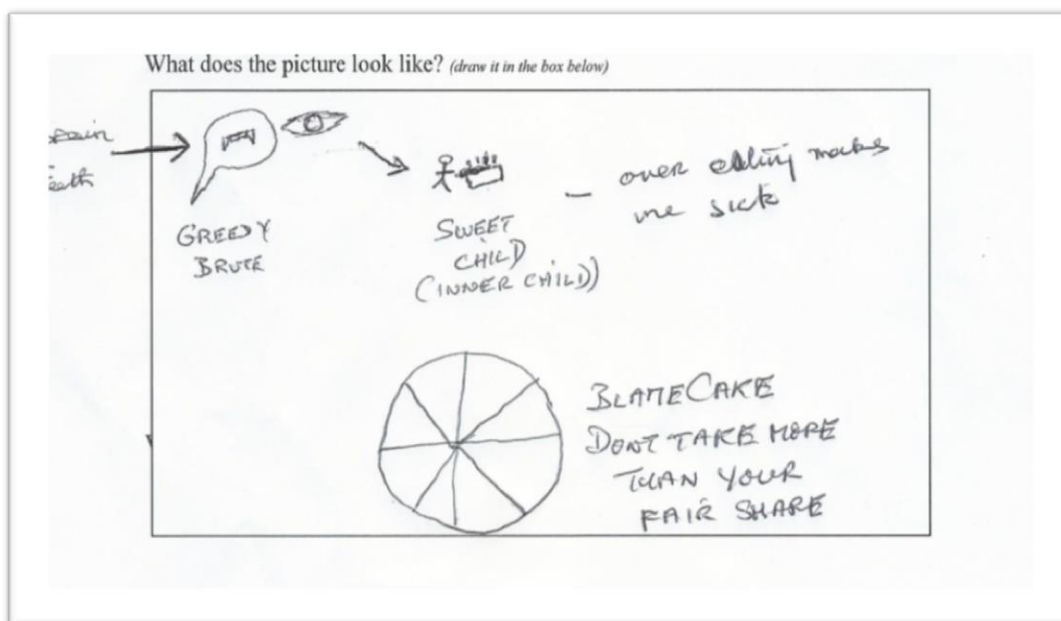 What does the picture look like? (draw it in the box below)
GREEDY
BRUTE
SWEET
CHILD
(INNER CHILD))
over eating makes
me sick
BLAME CAKE
DONT TAKE MORE
THAN YOUR
FAIR SHARE